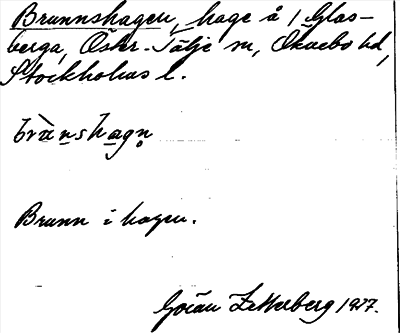 Brunnshagen, hage å 1 Glas-
berga, Öster-Tälje sn, Öknebo hd,
Stockholms l.
brùnshagn̥
Brunn i hagen.
Göran Zetterberg 1927.